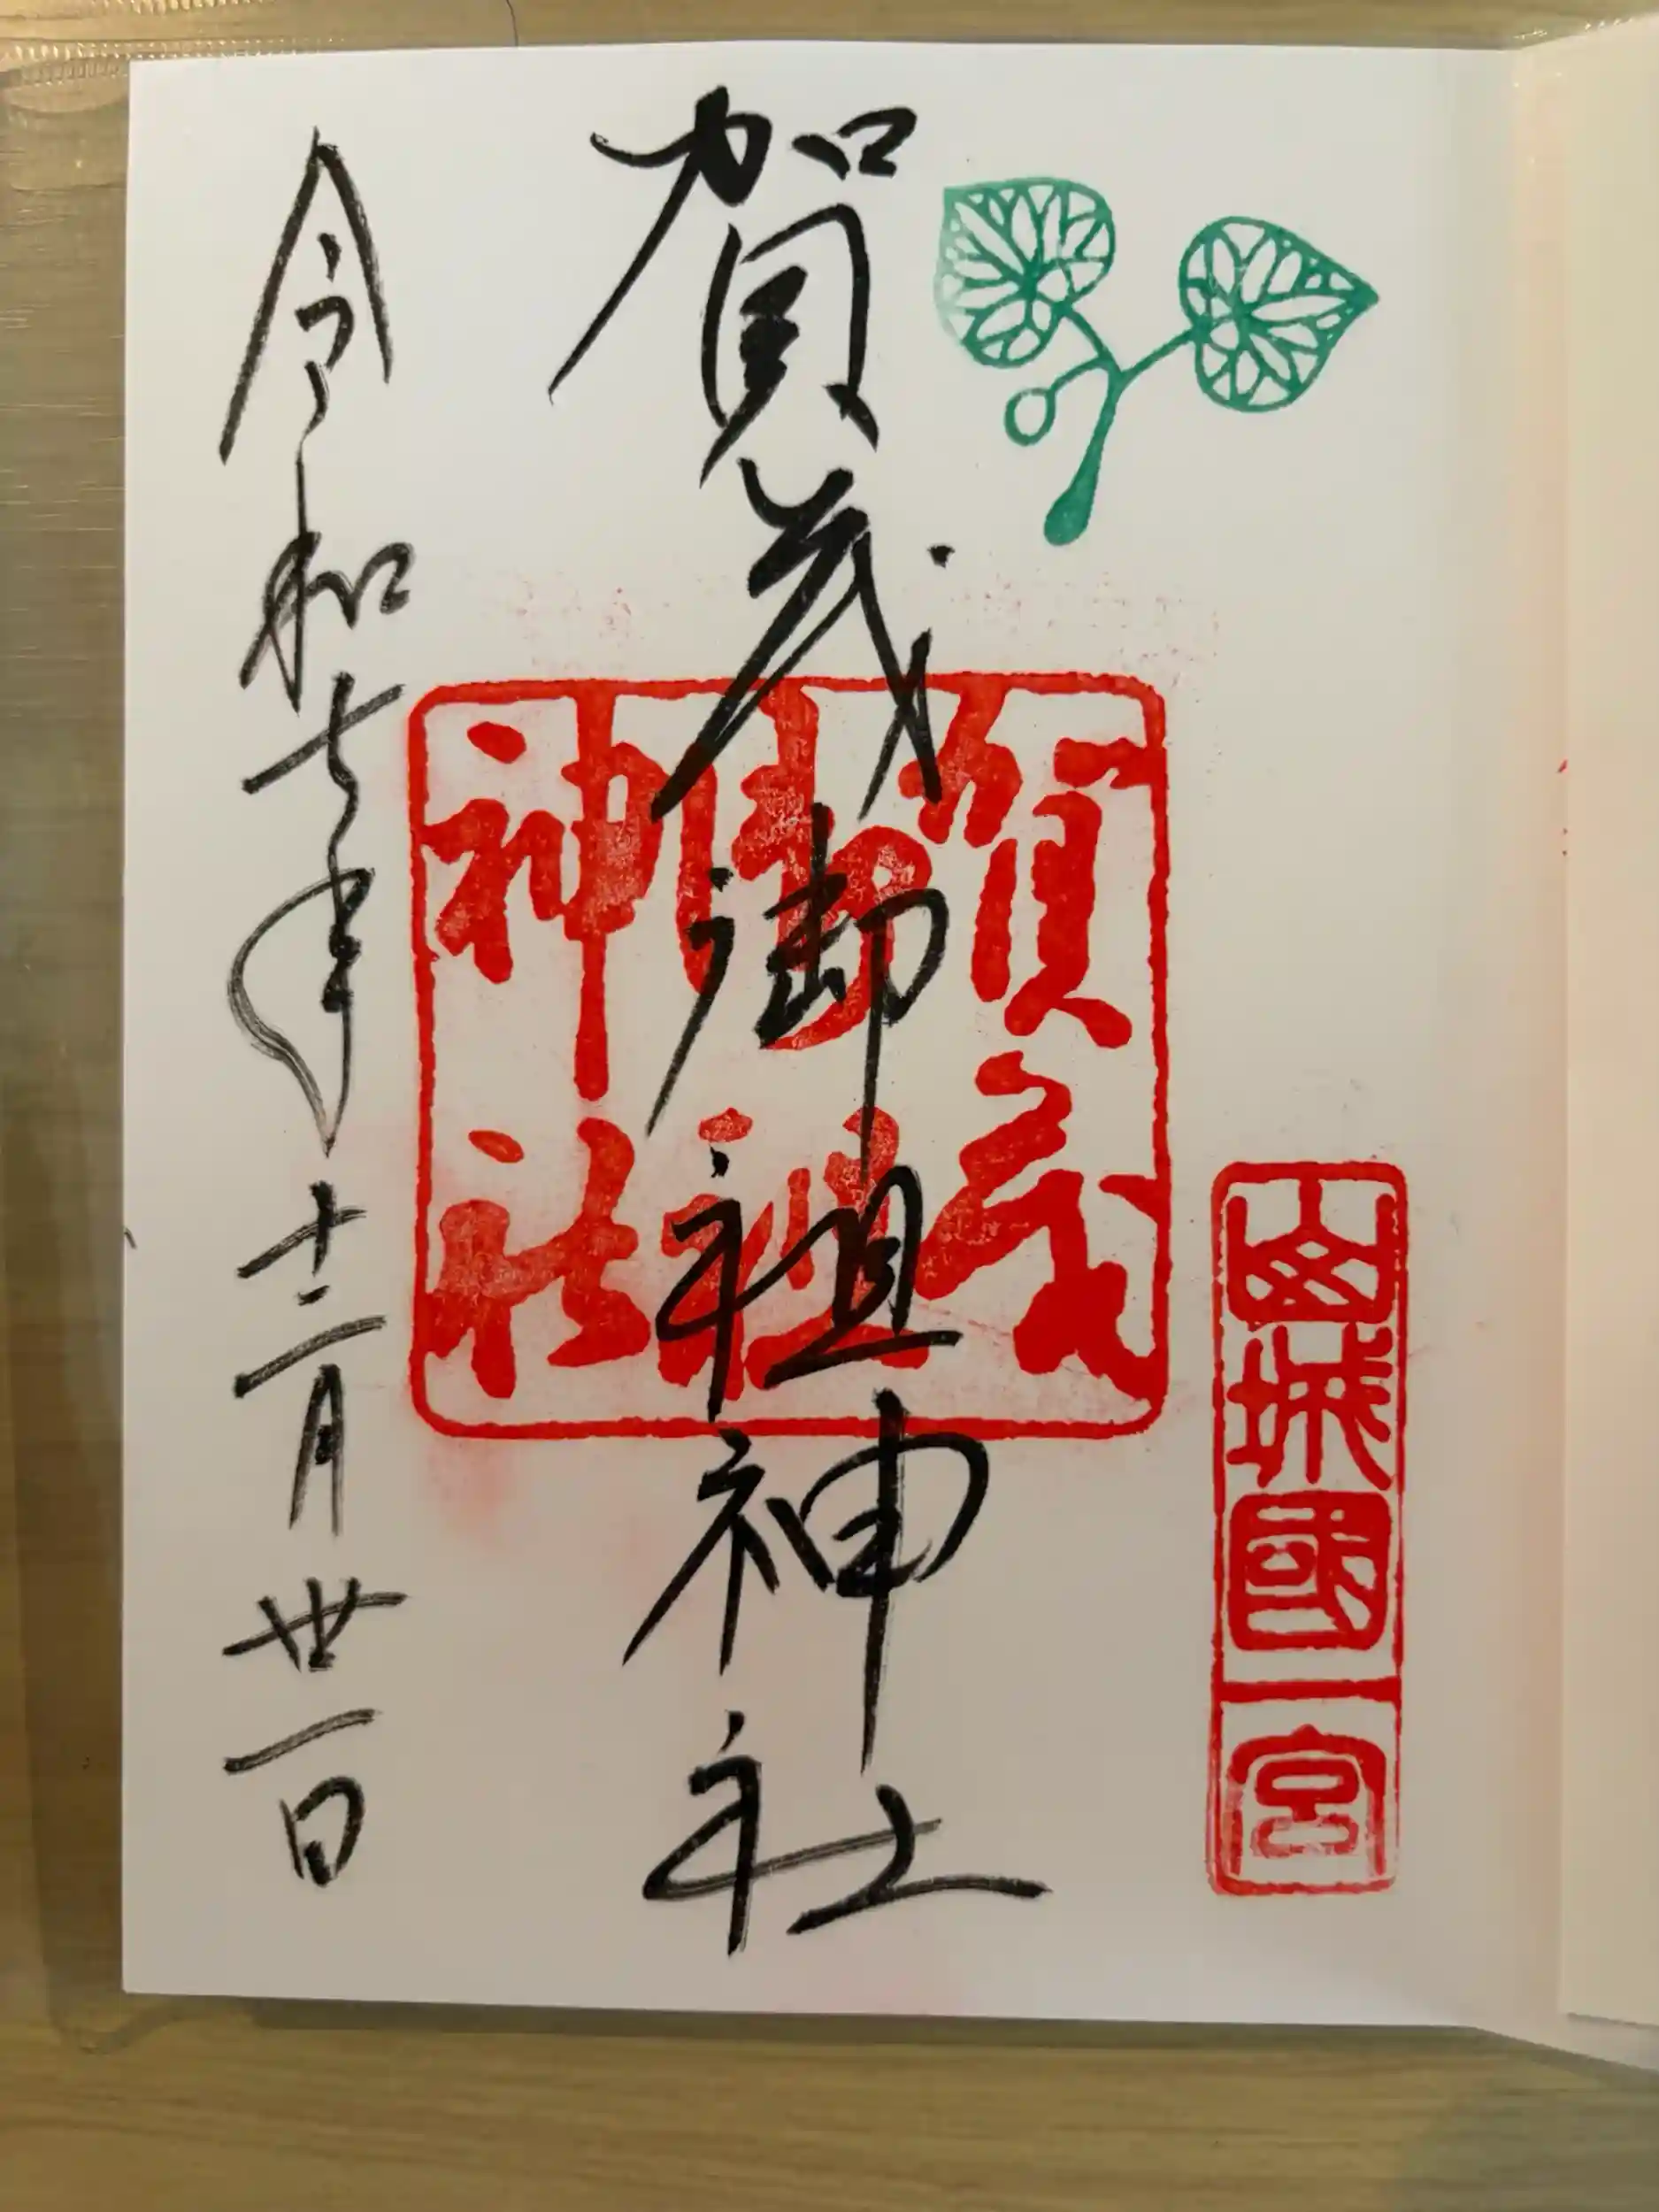 山城國一宮
賀茂御祖神社
賀茂
御祖
神社
令和七年十二月卅一日